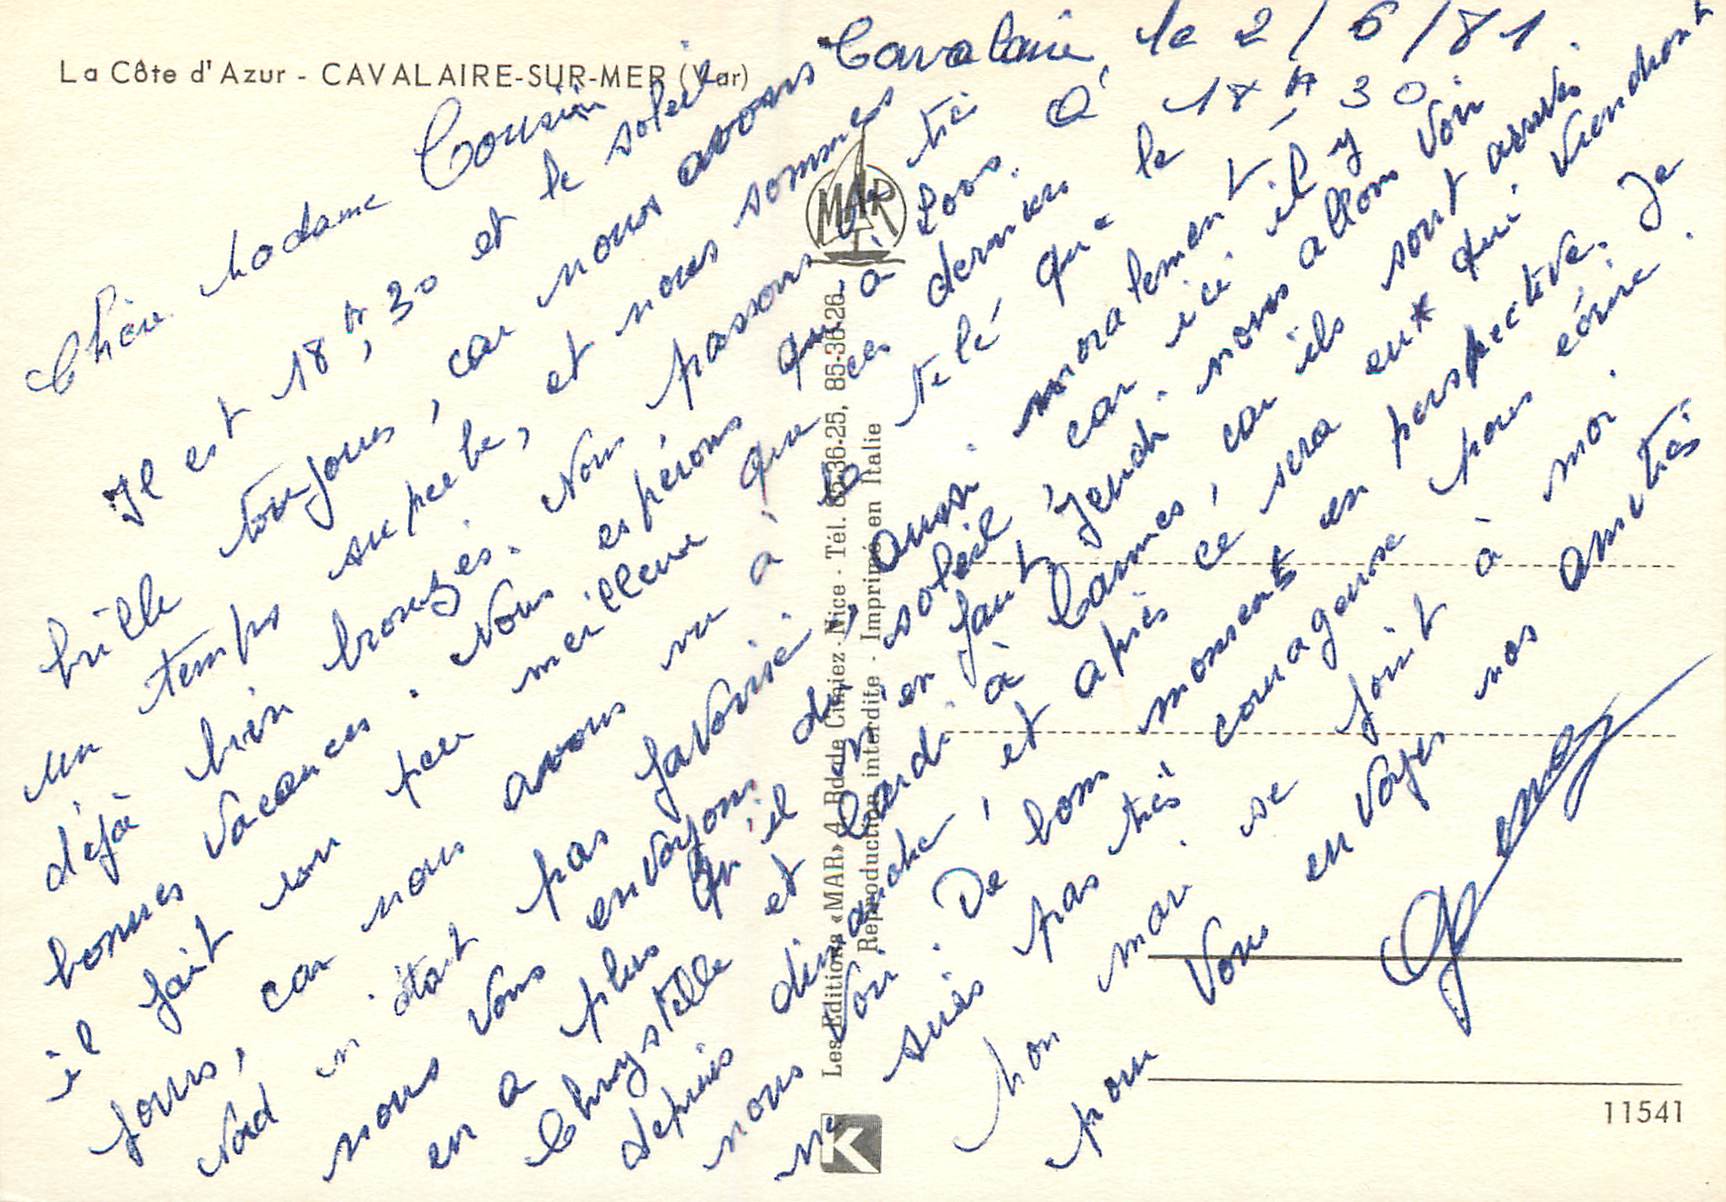 La Côte d'Azur - CAVALAIRE-SUR-MER (Var)
Cavalaire, le 2/6/81.
à 18 H 30
Chère Madame Cousin
Il est 18 H, 30 et le soleil
brille toujours, car nous avons
un temps superbe, et nous sommes
déjà bien bronzés. Nous passons de très
bonnes vacances. Nous espérons qu'à Loos.
il fait un peu meilleur que ces derniers
jours, car nous avons vu à la télé que le
Nord n'était pas favorisé,
nous vous envoyons du soleil, aussi moralement
en a plus qu'il n'en faut, car ici il y
Chrystelle et Lardi à Cannes, jeudi nous allons voir
depuis dimanche, et après ce sera eux qui viendront
car ils sont arrivés
nous voir. De bons moments en perspective. Je
ne suis pas très courageuse pour écrire.
Mon mari se joint à moi
pour vous envoyer nos amitiés
MAR
Les Editions «MAR» 4 Bd de Cimiez - Nice - Tél. 85-36-25, 85-36-26
Reproduction interdite - Imprimé en Italie
K
11541